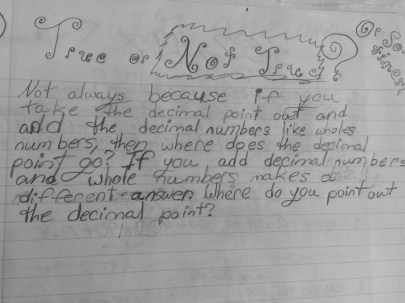 True or Not True? Or So
Not always because if you
take the decimal point out and
add the decimal numbers like wholes
numbers, then where does the decimal
point go? If you add decimal numbers
and whole numbers makes a
different answer. Where do you point out
the decimal point?